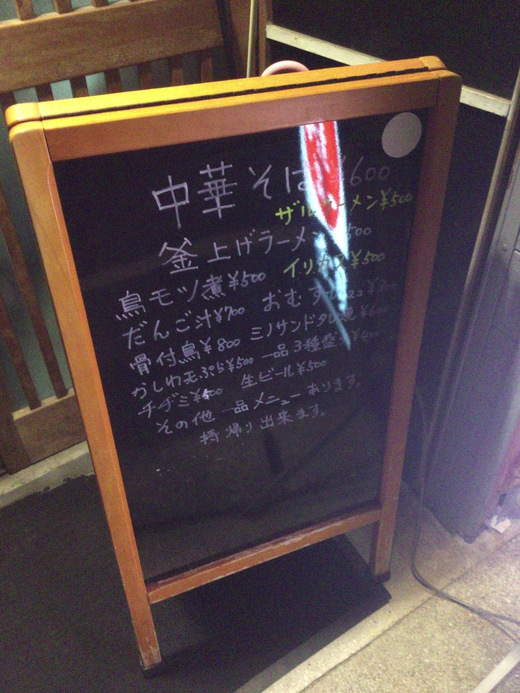 中華そば ¥600
ザルラーメン¥500
釜上げラーメン 500
イリカス¥500
鳥モツ煮¥500
だんご汁¥700 おむすび
骨付鳥¥800 ミノサンドタレ焼 600
かしわ天ぷら¥500 一品3種盛
チヂミ¥400 生ビール¥500
その他 一品メニューあります。
持帰り出来ます。